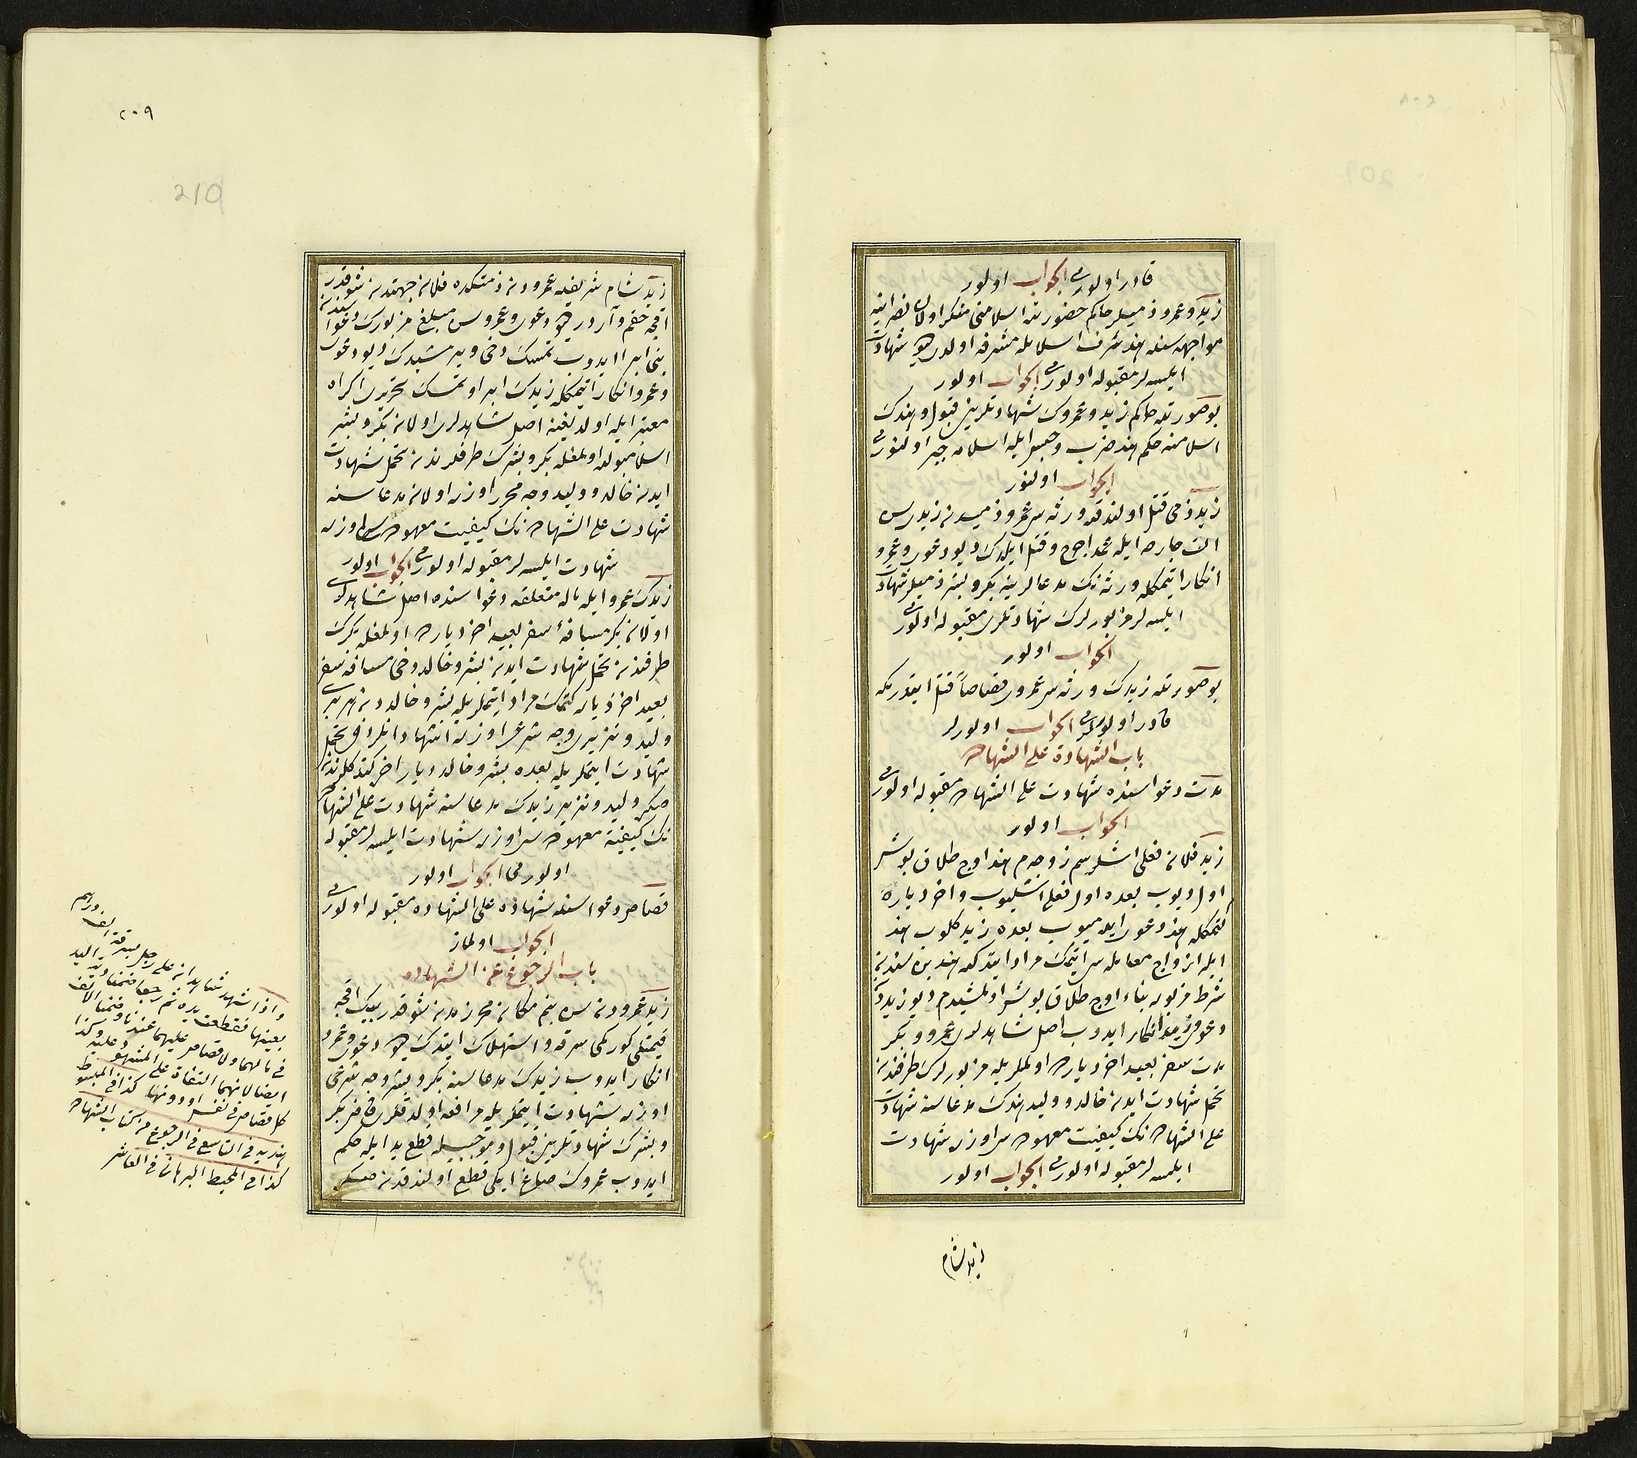 قادر اولورمی الجواب اولور
زید و عمرو ذمیلر حاکم حضورنده اسلامنی منکر اولان نصرانیه
مواجهه سنده هند شرف اسلامله مشرفه اولدی دیو شهادت
ایلسه لر مقبوله اولورمی الجواب اولور
بو صورتده حاکم زید و عمروک شهادتلرین قبول و هندک
اسلامنه حکم هند ضرب و حبس ایله اسلامه جبر اولنورمی
الجواب اولنور
زید ذمی قتل اولندقده ورثه سی عمرو ذمیدن زیدی سن
آلت جارحه ایله عمدا جرح و قتل ایلدک دیو دعوی و عمرو
انکار ایتمکله ورثه نک مدعالرینه بکر و بشر ذمیلر شهادت
ایلسه لر مزبورلرک شهادتلری مقبوله اولورمی
الجواب اولور
بو صورتده زیدک ورثه سی عمروی قصاصاً قتل ایتدرمکه
قادر اولورلرمی الجواب اولورلر
باب الشهادة علی الشهاده
مدت دعواسنده شهادت علی الشهاده مقبوله اولورمی
الجواب اولور
زید فلان فعلی اشلرسم زوجه م هند اوچ طلاق بوش
اول دیوب بعده اول فعلی اشلیوب و اخر دیاره
کتمکله هند دعوی ایده میوب بعده زید کلوب هند
ایله ازواج معامله سی ایتمک مراد ایتدکده هند بن سندن
شرط مزبوره بناء اوچ طلاق بوش اولمشیدم دیو زیددن
دعوی و زید انکار ایدوب اصل شاهدلری عمرو و بکر
مدت سفر بعید اخر دیارده اولملریله مزبورلرک طرفندن
تحمل شهادت ایدن خالد و ولید هندک مدعاسنه شهادت
علی الشهاده نک کیفیت معهوده سی اوزره شهادت
ایلسه لر مقبوله اولورمی الجواب اولور
زید شام
٢٠٩
210
زید شام شریفده عمرودن ذمتکده فلان جهتدن شو قدر
اقچه حقم وار دیو دعوی و عمرو سن مبلغ مزبورک دعواسندن
بنی ابرا ایدوب تمسک دخی ویرمشیدک دیو دعوی
و عمرو انکار ایتمکله زیدک ابرا و تمسک تحریری اکراه
معتبر ایله اولدیغنه اصل شاهدلری اولان بکر و بشر
اسلامبولده اولمغله بکر و بشرک طرفلرندن تحمل شهادت
ایدن خالد و ولید وجه محرر اوزره اولان مدعاسنه
شهادت علی الشهاده نک کیفیت معهوده سی اوزره
شهادت ایلسه لر مقبوله اولورمی الجواب اولور
زیدک عمرو ایله ماله متعلقه دعواسنده اصل شاهدلری
اولان بکر مسافه سفر بعید اخر دیارده اولمغله بکرک
طرفندن تحمل شهادت ایدن بشر و خالد دخی مسافه سفر
بعید اخر دیاره کتمک مراد ایتملریله بشر و خالد دن هر بری
ولید و نذیری وجه شرعی اوزره اشهاد انلر دخی تحمل
شهادت ایتملریله بعده بشر و خالد دیار اخره کتدکلرندن
صکره ولید و نذیر زیدک مدعاسنه شهادت علی الشهاده
نک کیفیة معهوده سی اوزره شهادت ایلسه لر مقبوله
اولورمی الجواب اولور
قصاص دعواسنده شهادة علی الشهاده مقبوله اولورمی
الجواب اولماز
باب الرجوع عن الشهاده
زید عمرودن سن بنم مکان محرزمدن شو قدر بیک اقچه
قیمتلی کورکمی سرقه و استهلاک ایتدک دیو دعوی و عمرو
انکار ایدوب زیدک مدعاسنه بکر و بشر وجه شرعی
اوزره شهادت ایتملریله مرافعه اولدقلری قاضی بکر
و بشرک شهادتلرین قبول و موجبیله قطع ید ایله حکم
ایدوب عمروک صاغ الیکی قطع اولندقدن صکره
واذا شهد شاهدان علی رجل بسرقة الف درهم
بعینها فقطعت یده ثم رجعا ضمنا دیة الید
فی مالهما ولا قصاص علیهما عندنا وضمنا الالف
ایضا لانهما اتلفاه علی المشهود علیه وکذا
کل قصاص فی نفس او دونها کذا فی المبسوط
هندیه فی التاسع فی الرجوع من کتاب الشهاده
کذا فی المحیط البرهانی فی العاشر